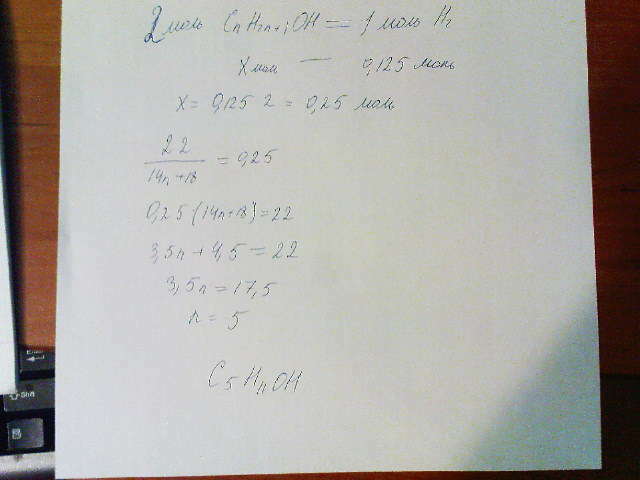 2 моль CnH2n+1OH = 1 моль H2
X мол — 0,125 моль
X = 0,125 2 = 0,25 моль
22
14n+18 = 0,25
0,25 (14n+18) = 22
3,5n + 4,5 = 22
3,5n = 17,5
n = 5
C5H11OH
Shift